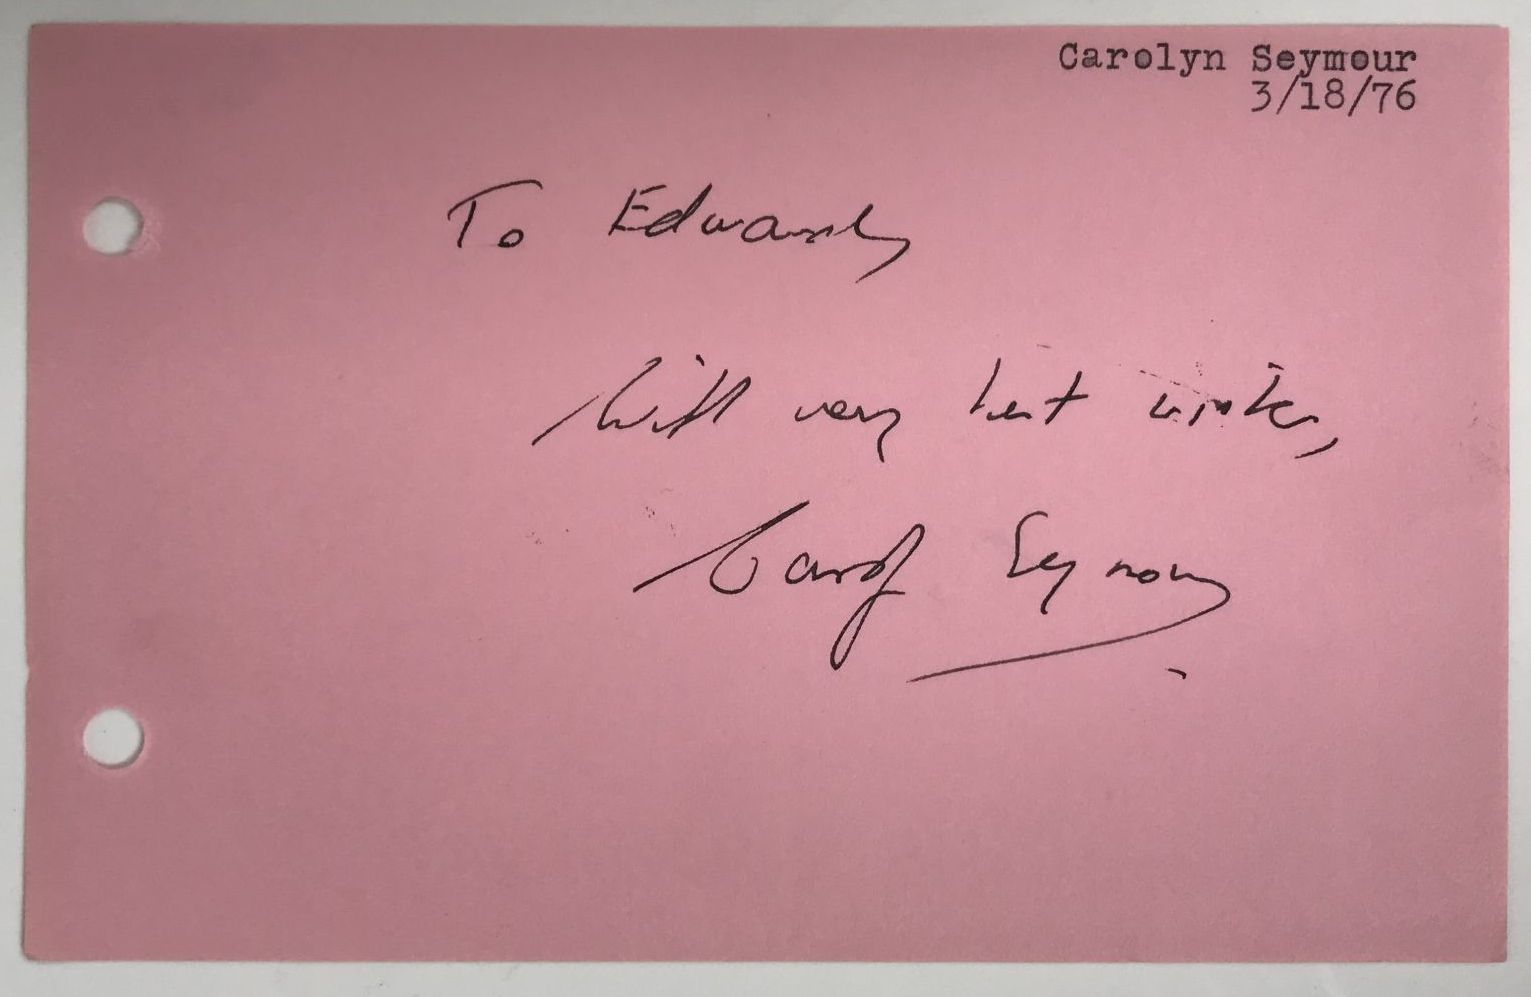 Carolyn Seymour
3/18/76
To Edward,
With very best wishes,
Carolyn Seymour